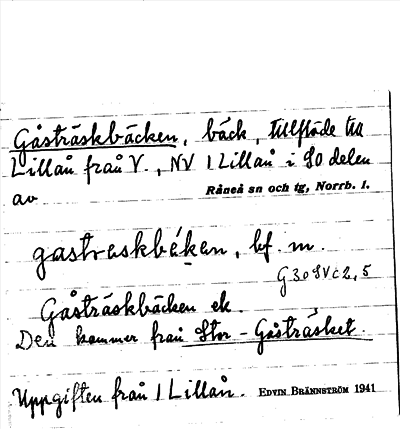 Gåsträskbäcken, bäck, tillflöde till
Lillån från V., NV 1 Lillån i SO delen
av Råneå sn och tg, Norrb. l.
gastraskbékan, bf. m.
G 30 SV c 2, 5
Gåsträskbäcken ek.
Den kommer från Stor-Gåsträsket.
Uppgiften från 1 Lillån. EDVIN BRÄNNSTRÖM 1941